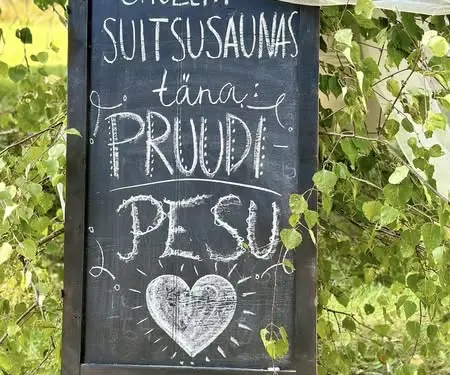 SUITSUSAUNAS
täna:
PRUUDI-
PESU